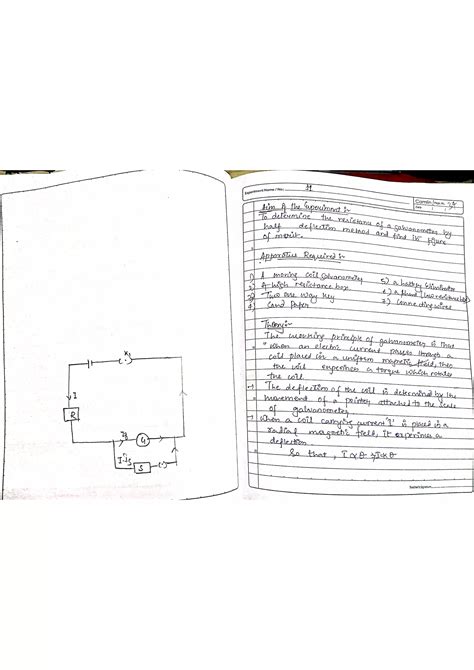 K1
I
R
Ig
G
I-Ig
S
Experiment Name / No.:
Date
Aim of the Experiment :-
To determine the resistance of a galvanometer by
half deflection method and find its figure
of merit.
Apparatus Required :-
1) A moving coil Galvanometer
5) a battery Eliminator
2) A high resistance box
3) Two one way key
4) Sand Paper
7) Connecting wires
Theory:-
The working principle of galvanometer is that
"When an electric current passes through a
coil placed in a uniform magnetic field, then
the coil experience a torque which rotates
the coil
→ The deflection of the coil is determined by the
movement of a pointer attached to the scale
of galvanometer
→ When a coil carrying current 'I' is placed in a
radial magnetic field, it experience a
deflection
So that, I ∝ θ
Teacher's Signature